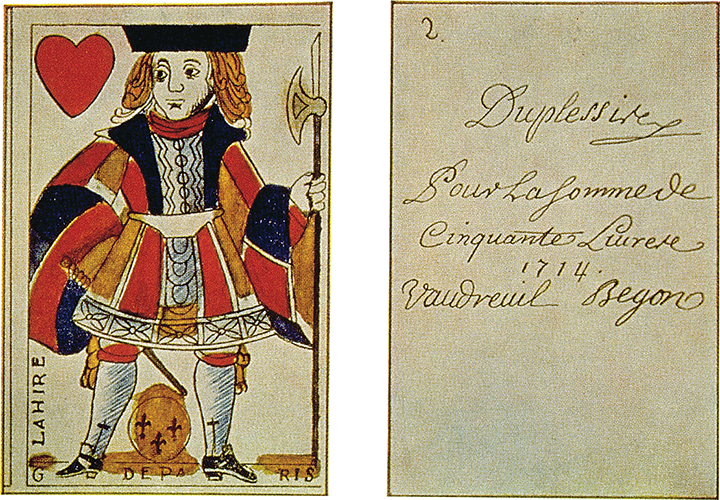 LAHIRE
G DE PA RIS
2.
Duplessire
Pour La Somme de
Cinquante Liurere
1714.
Vaudreuil Begon